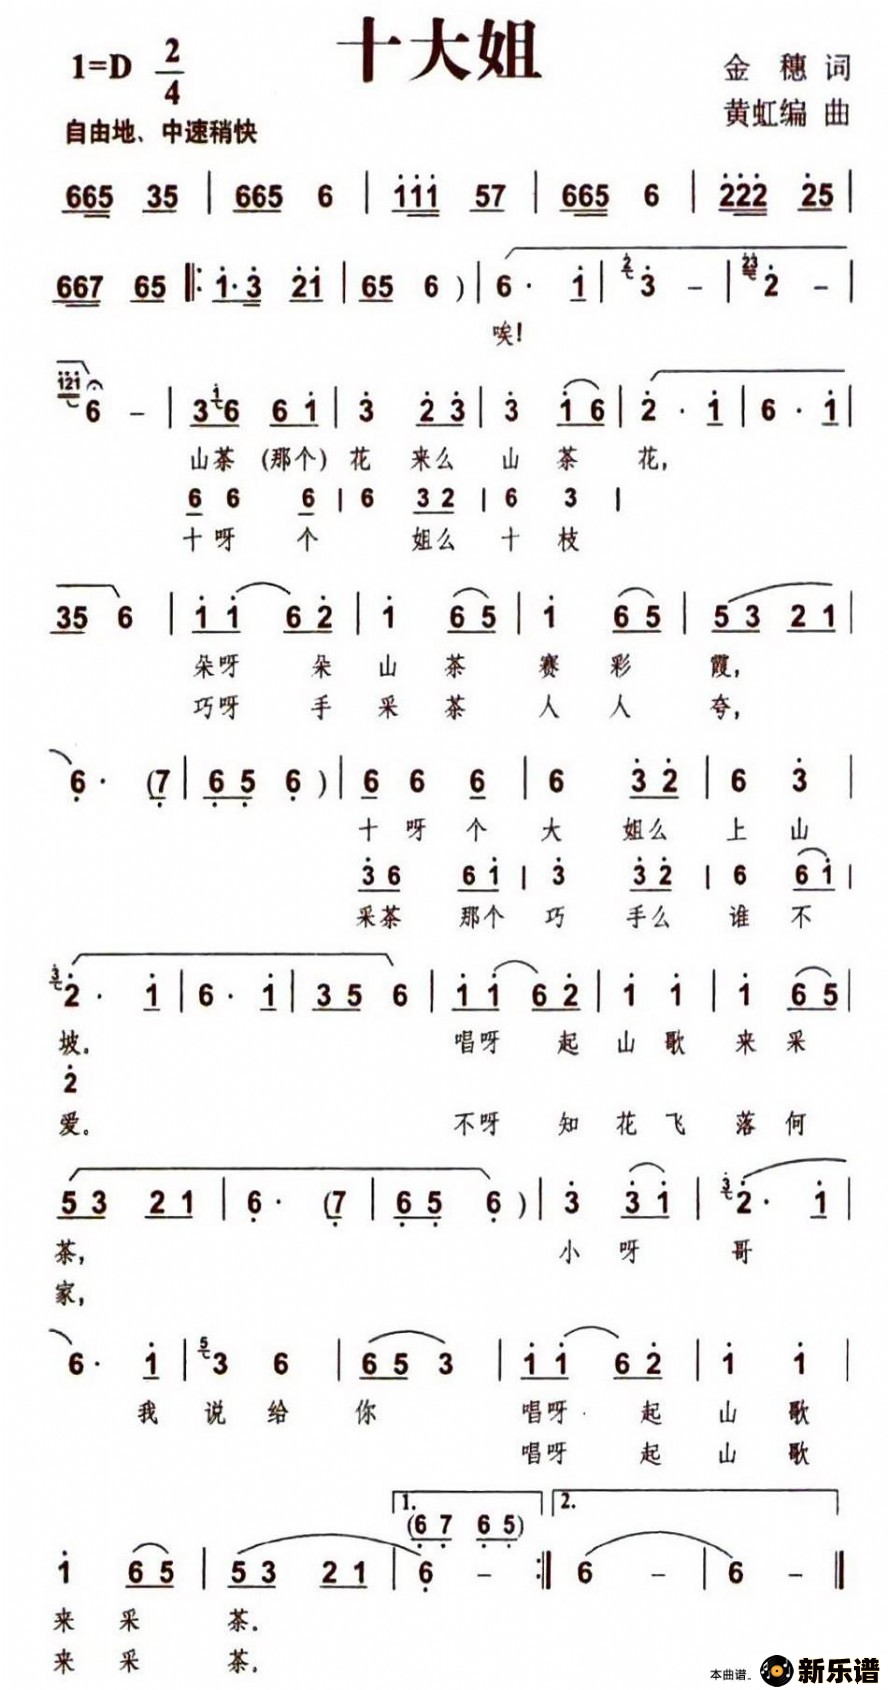 十大姐
1=D 2/4
金 穗 词
黄虹编 曲
自由地、中速稍快
665 35 | 665 6 | i̇i̇i̇ 57 | 665 6 | 2̇2̇2̇ 2̇5 |
667 65 ‖: 1̇·3̇ 2̇1̇ | 65 6 ) | 6· 1̇ | 2̇ 3̇ – | 2̇3̇ 2̇ – |
唉!
1̇2̇1̇ 6 – | 3 1̇ 6 6 1̇ | 3̇ 2̇ 3̇ | 3̇ 1̇ 6 | 2̇ · 1̇ | 6 · 1̇ |
山茶 (那个) 花 来么 山 茶 花,
6 6 6 | 6 3 2 | 6 3 |
十呀 个 姐么 十 枝
35 6 | 1̇ 1̇ 6 2̇ | 1̇ 6 5 | 1̇ 6 5 | 5 3 2 1 |
朵呀 朵 山 茶 赛 彩 霞,
巧呀 手 采 茶 人 人 夸,
6̣· (7̣ | 6̣ 5̣ 6̣ ) | 6 6 6 | 6 3̇ 2̇ | 6 3̇ |
十 呀 个 大 姐么 上 山
3̇ 6 6 1̇ | 3̇ 3̇ 2̇ | 6 6 1̇ |
采茶 那个 巧 手么 谁 不
3̇ 2̇ · 1̇ | 6 · 1̇ | 3 5 6 | 1̇ 1̇ 6 2̇ | 1̇ 1̇ | 1̇ 6 5 |
坡。 唱呀 起 山 歌 来 采
2̇
爱。 不呀 知 花 飞 落 何
5 3 2 1 | 6̣· (7̣ | 6̣ 5̣ 6̣ ) | 3̇ 3̇ 1̇ | 3̇ 2̇· 1̇ |
茶, 小 呀 哥
家,
6· 1̇ | 5 3 6 | 6 5 3 | 1̇ 1̇ 6 2̇ | 1̇ 1̇ |
我 说 给 你 唱呀 · 起 山 歌
唱呀 起 山 歌
1. (6̣ 7̣ 6̣ 5̣) 2.
1̇ 6 5 | 5 3 2 1 | 6̣ – :‖ 6 – | 6 – ‖
来 采 茶.
来 采 茶.
本曲谱.. 新乐谱